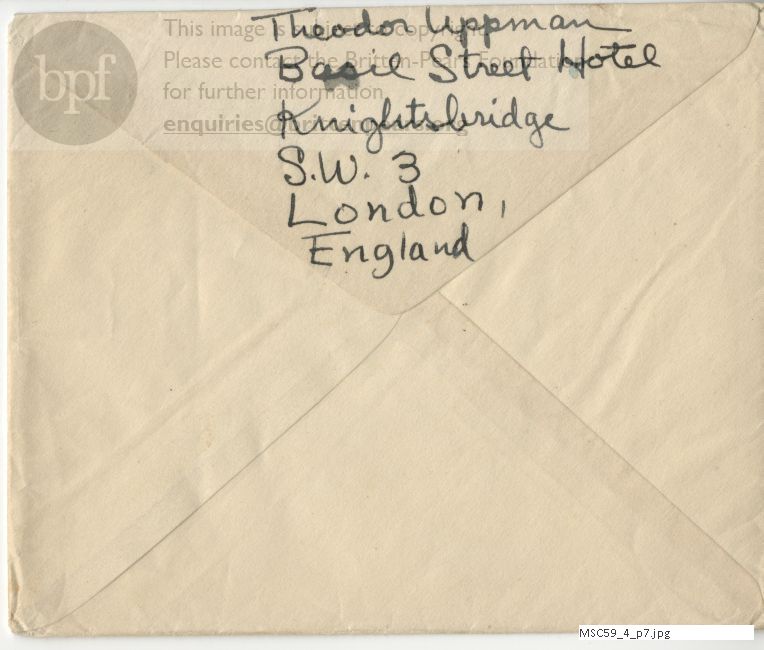 Theodor Uppman
Basil Street Hotel
Knightsbridge
S.W. 3
London,
England
bpf
This image is subject to copyright
Please contact the Britten-Pears Foundation
for further information
enquiries@
MSC59_4_p7.jpg